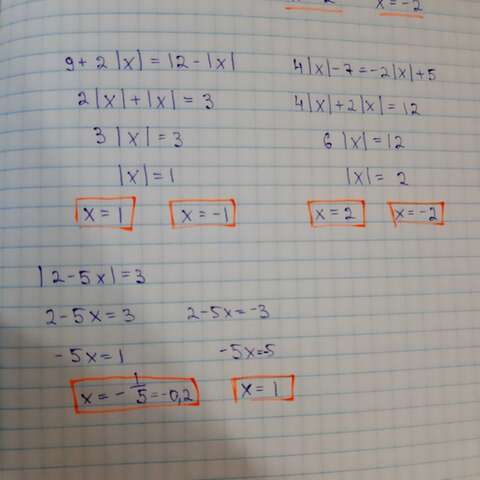 x = -2
9 + 2|x| = 12 - |x|
2|x| + |x| = 3
3|x| = 3
|x| = 1
x = 1
x = -1
4|x| - 7 = -2|x| + 5
4|x| + 2|x| = 12
6|x| = 12
|x| = 2
x = 2
x = -2
|2 - 5x| = 3
2 - 5x = 3
-5x = 1
x = -1/5 = -0,2
2 - 5x = -3
-5x = -5
x = 1